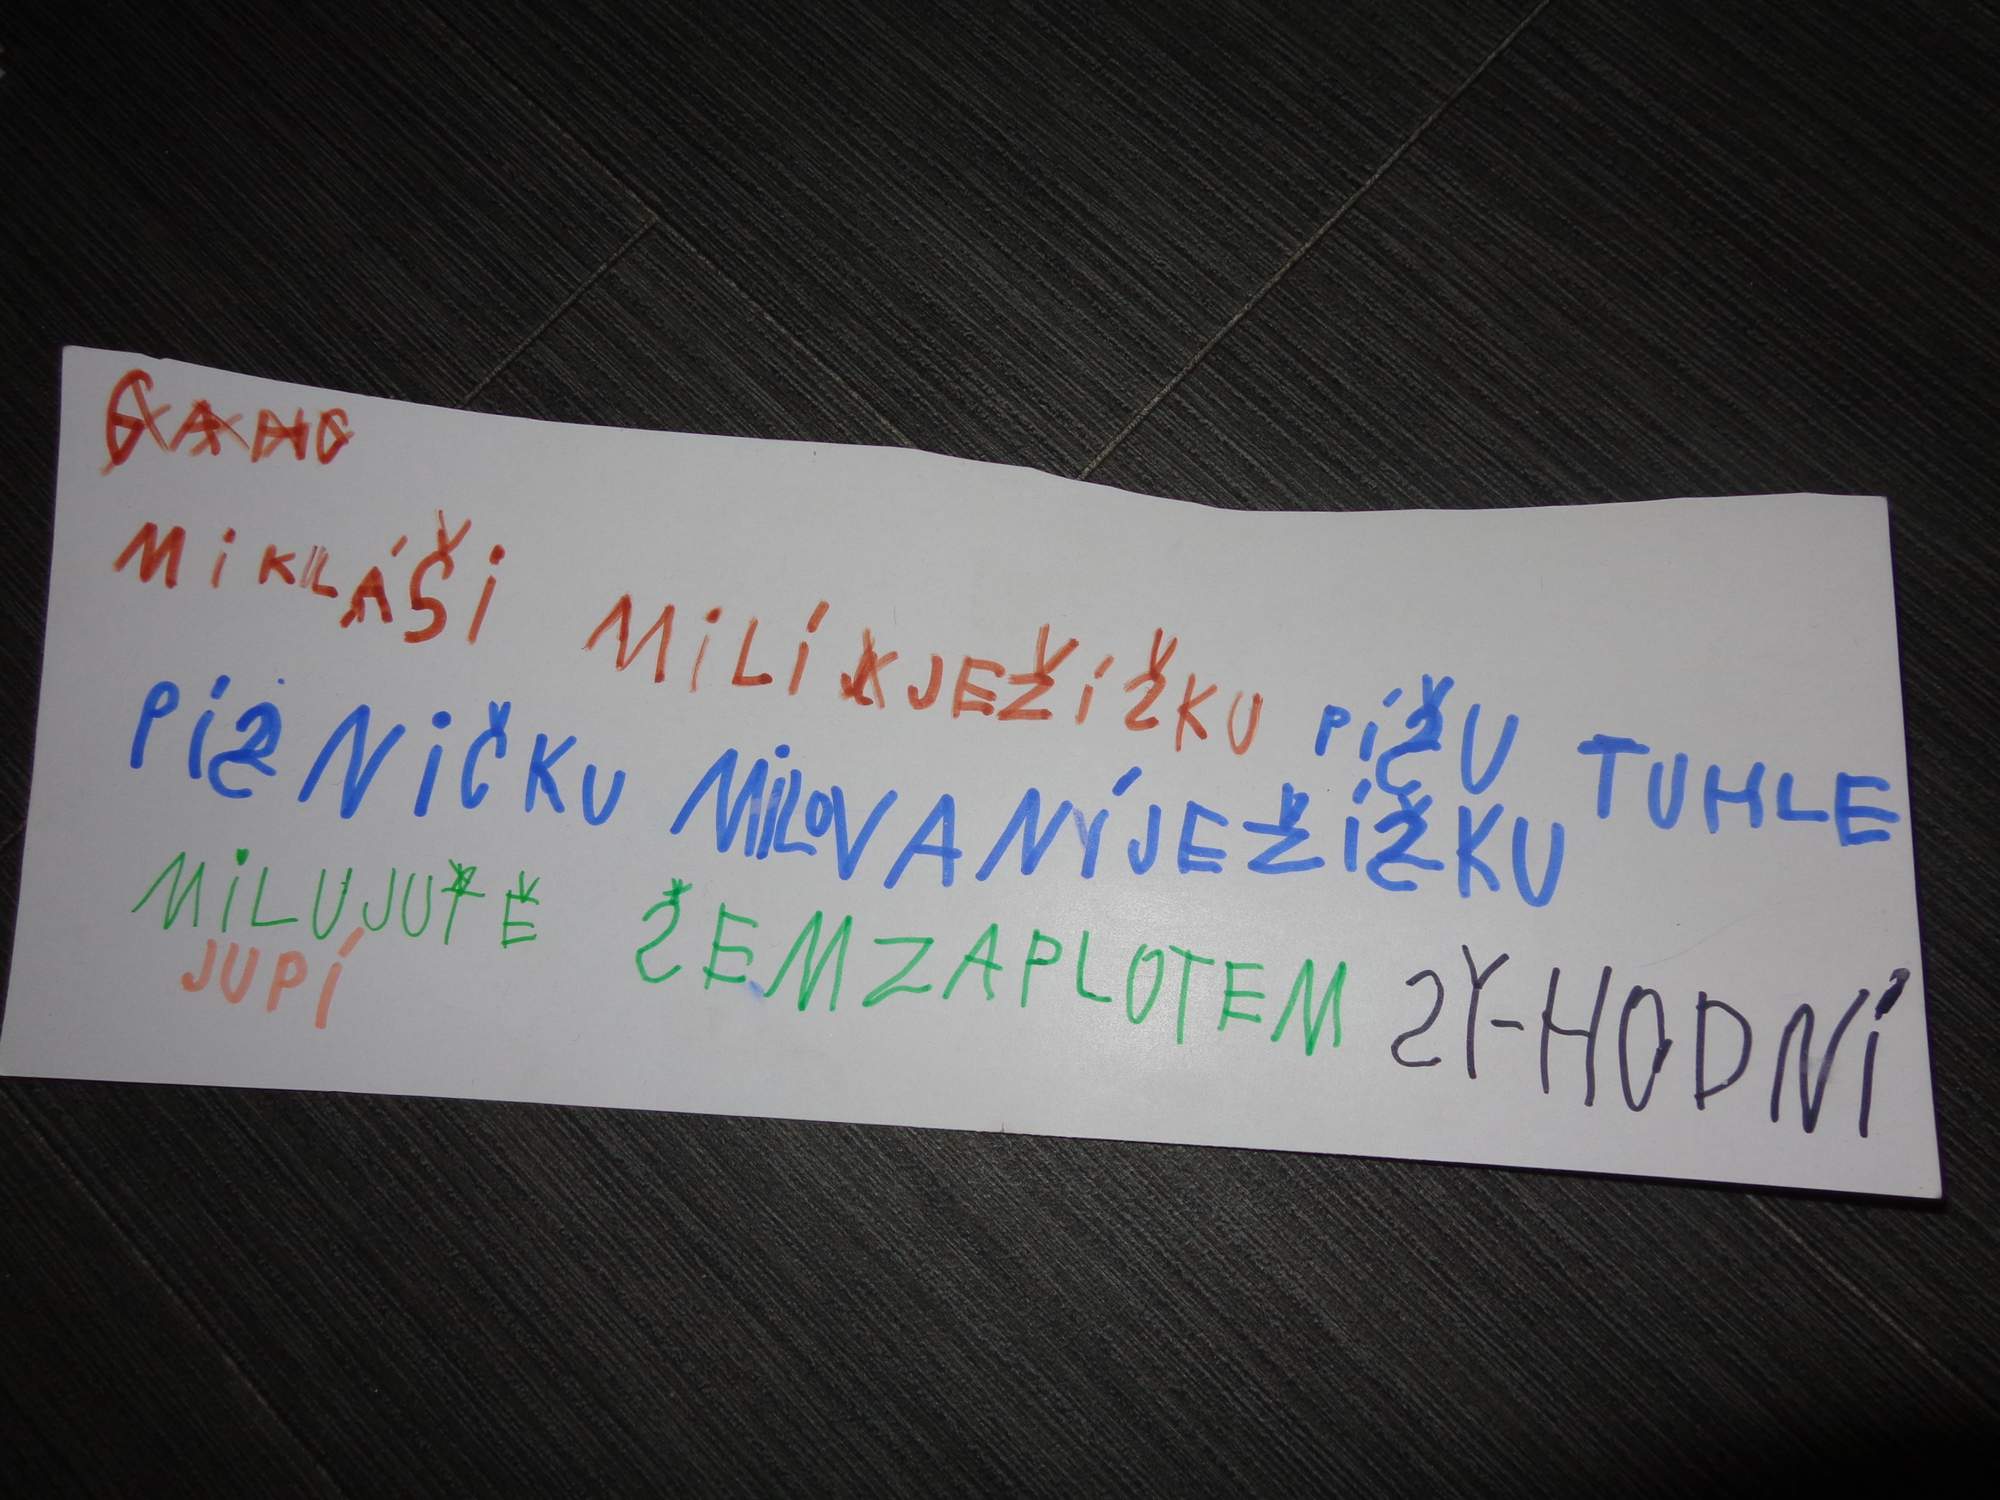 MIKLÁŠI MILÍ JEŽÍŽKU PÍŽU TUHLE
PÍZNIČKU MILOVANÍJEŽÍŽKU
MILUJUTĚ ŽEMZAPLOTEM ZY-HODNÍ
JUPÍ